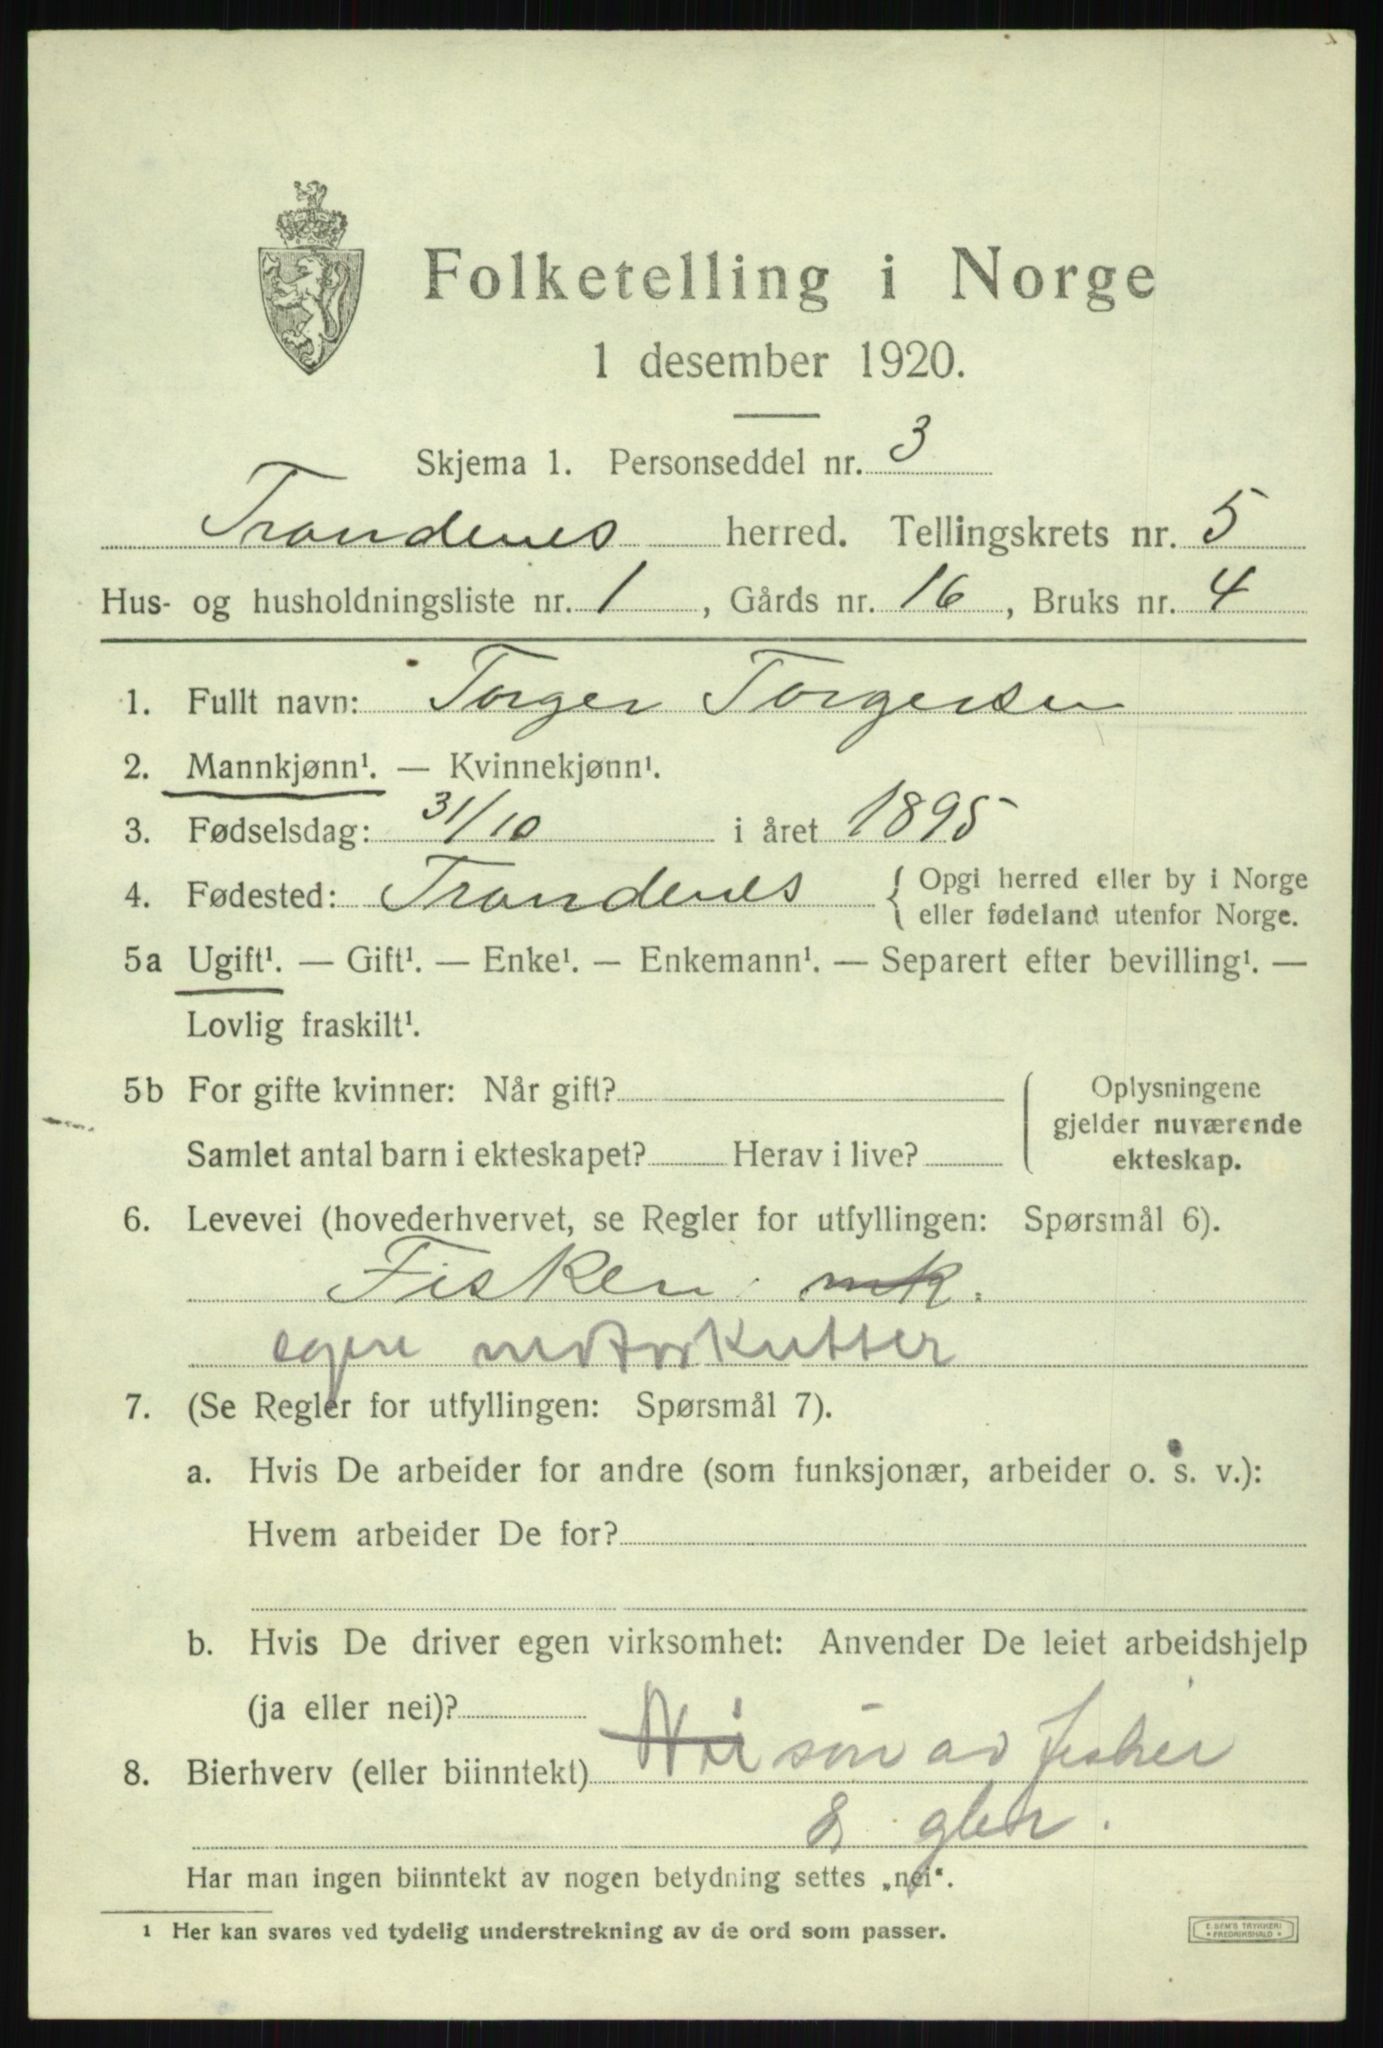 Folketelling i Norge
1 desember 1920.
Skjema 1. Personseddel nr. 3
Trondenes herred. Tellingskrets nr. 5
Hus- og husholdningsliste nr. 1, Gårds nr. 16, Bruks nr. 4
1. Fullt navn: Torger Torgersen
2. Mannkjønn¹. — Kvinnekjønn¹.
3. Fødselsdag: 31/10 i året 1895
4. Fødested: Trondenes { Opgi herred eller by i Norge
eller fødeland utenfor Norge.
5a Ugift¹. — Gift¹. — Enke¹. — Enkemann¹. — Separert efter bevilling¹. —
Lovlig fraskilt¹.
5b For gifte kvinner: Når gift?
Samlet antal barn i ekteskapet? Herav i live?
Oplysningene
gjelder nuværende
ekteskap.
6. Levevei (hovederhvervet, se Regler for utfyllingen: Spørsmål 6).
Fisker mk.
egen motorkutter
7. (Se Regler for utfyllingen: Spørsmål 7).
a. Hvis De arbeider for andre (som funksjonær, arbeider o. s. v.):
Hvem arbeider De for?
b. Hvis De driver egen virksomhet: Anvender De leiet arbeidshjelp
(ja eller nei)?
8. Bierhverv (eller biinntekt) Nei søn av fisker
& gbr.
Har man ingen biinntekt av nogen betydning settes „nei“.
1 Her kan svares ved tydelig understrekning av de ord som passer.
E. SEM'S TRYKKERI
FREDRIKSHALD